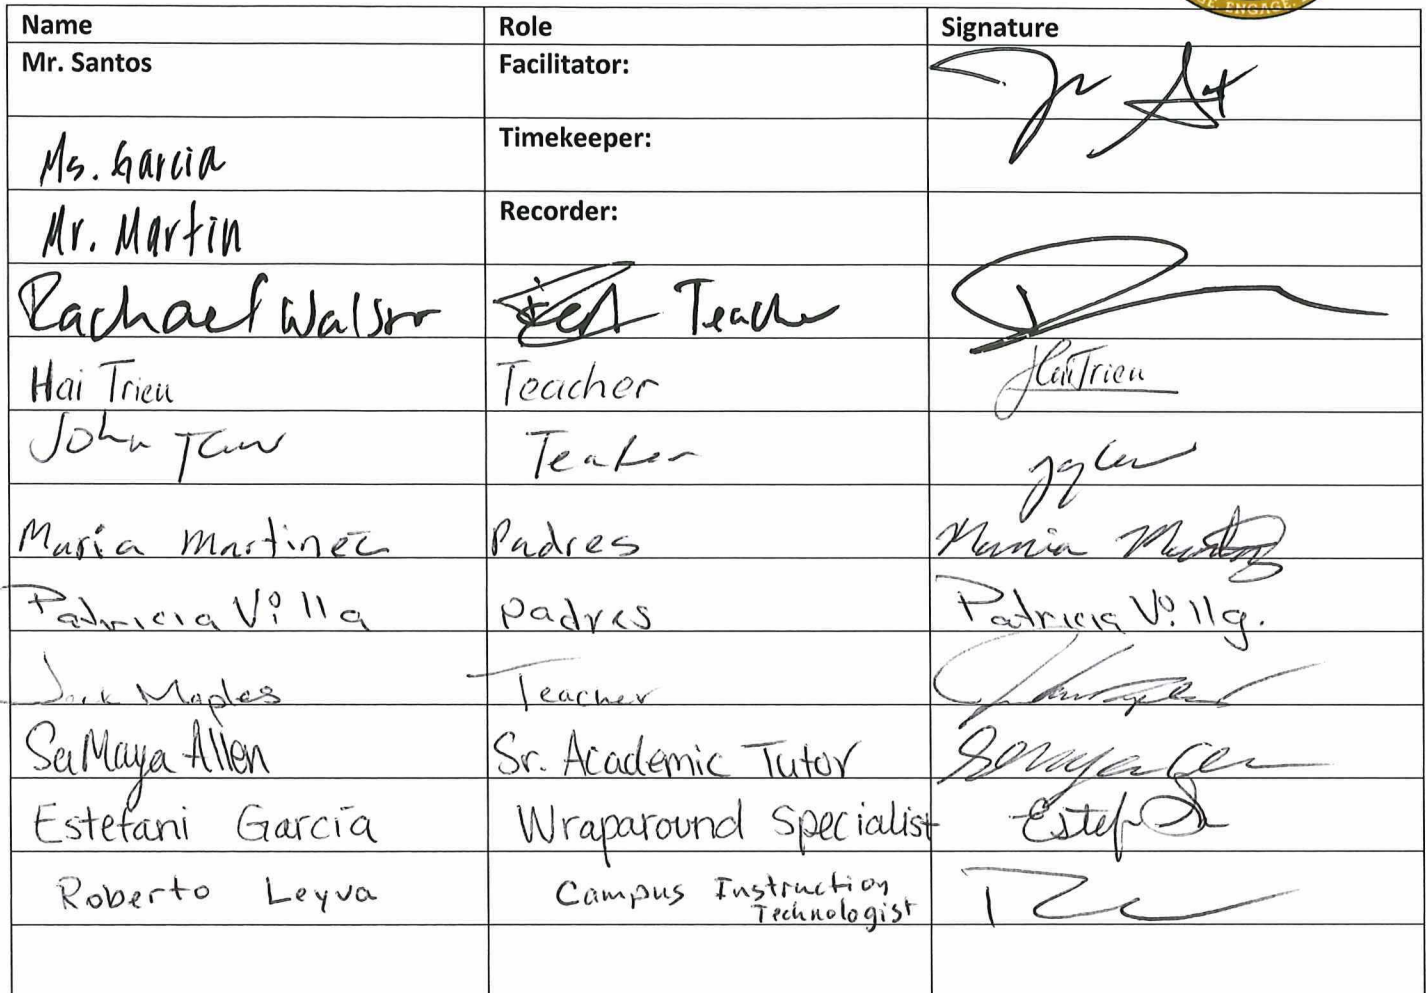 ENGAGE.
Name Role Signature
Mr. Santos Facilitator:
Ms. Garcia Timekeeper:
Mr. Martin Recorder:
Rachael Teacher
Hai Trieu Teacher Hai Trieu
John Teacher
Maria Martinez Padres Maria Martinez
Patricia Villa padres Patricia Villa.
Jack Maples Teacher
SaMaya Allen Sr. Academic Tutor
Estefani García Wraparound Specialist
Roberto Leyva Campus Instruction
Technologist